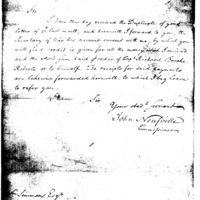 Sir
I have this day received the Duplicate of your
letter of 1 last, and herewith I forward to you the
Secretary of this his account current with me, by which you
will find credit is given for all the money I received
and the whole sum paid Order of Capt. Richard Brooke
Roberts or to himself. The receipts for which payments
are likewise forwarded herewith, to which I beg leave
to refer you.
I am Sir
Your obdt. Servant
John Neufville
Commissioner
Simmons Esqr.